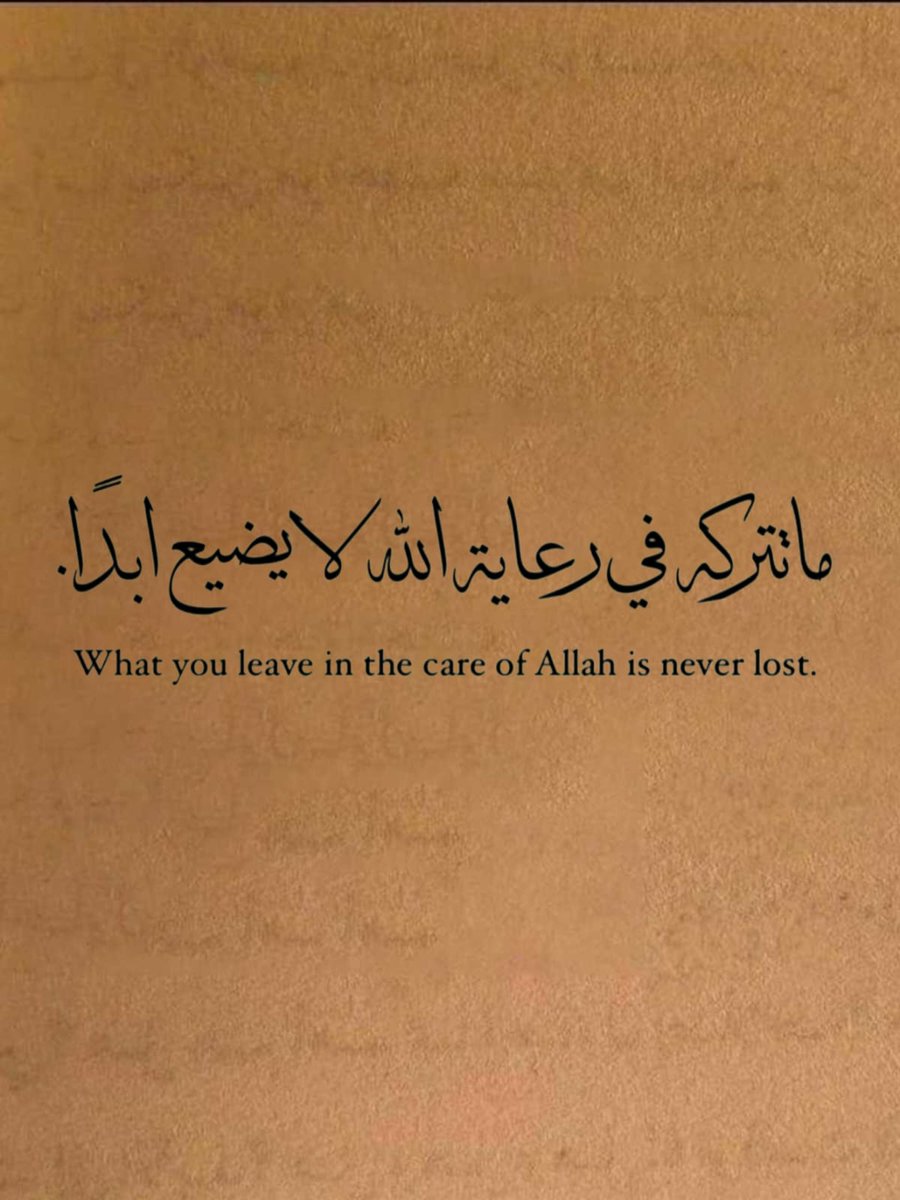 ما تتركه في رعاية الله لا يضيع ابدًا.
What you leave in the care of Allah is never lost.